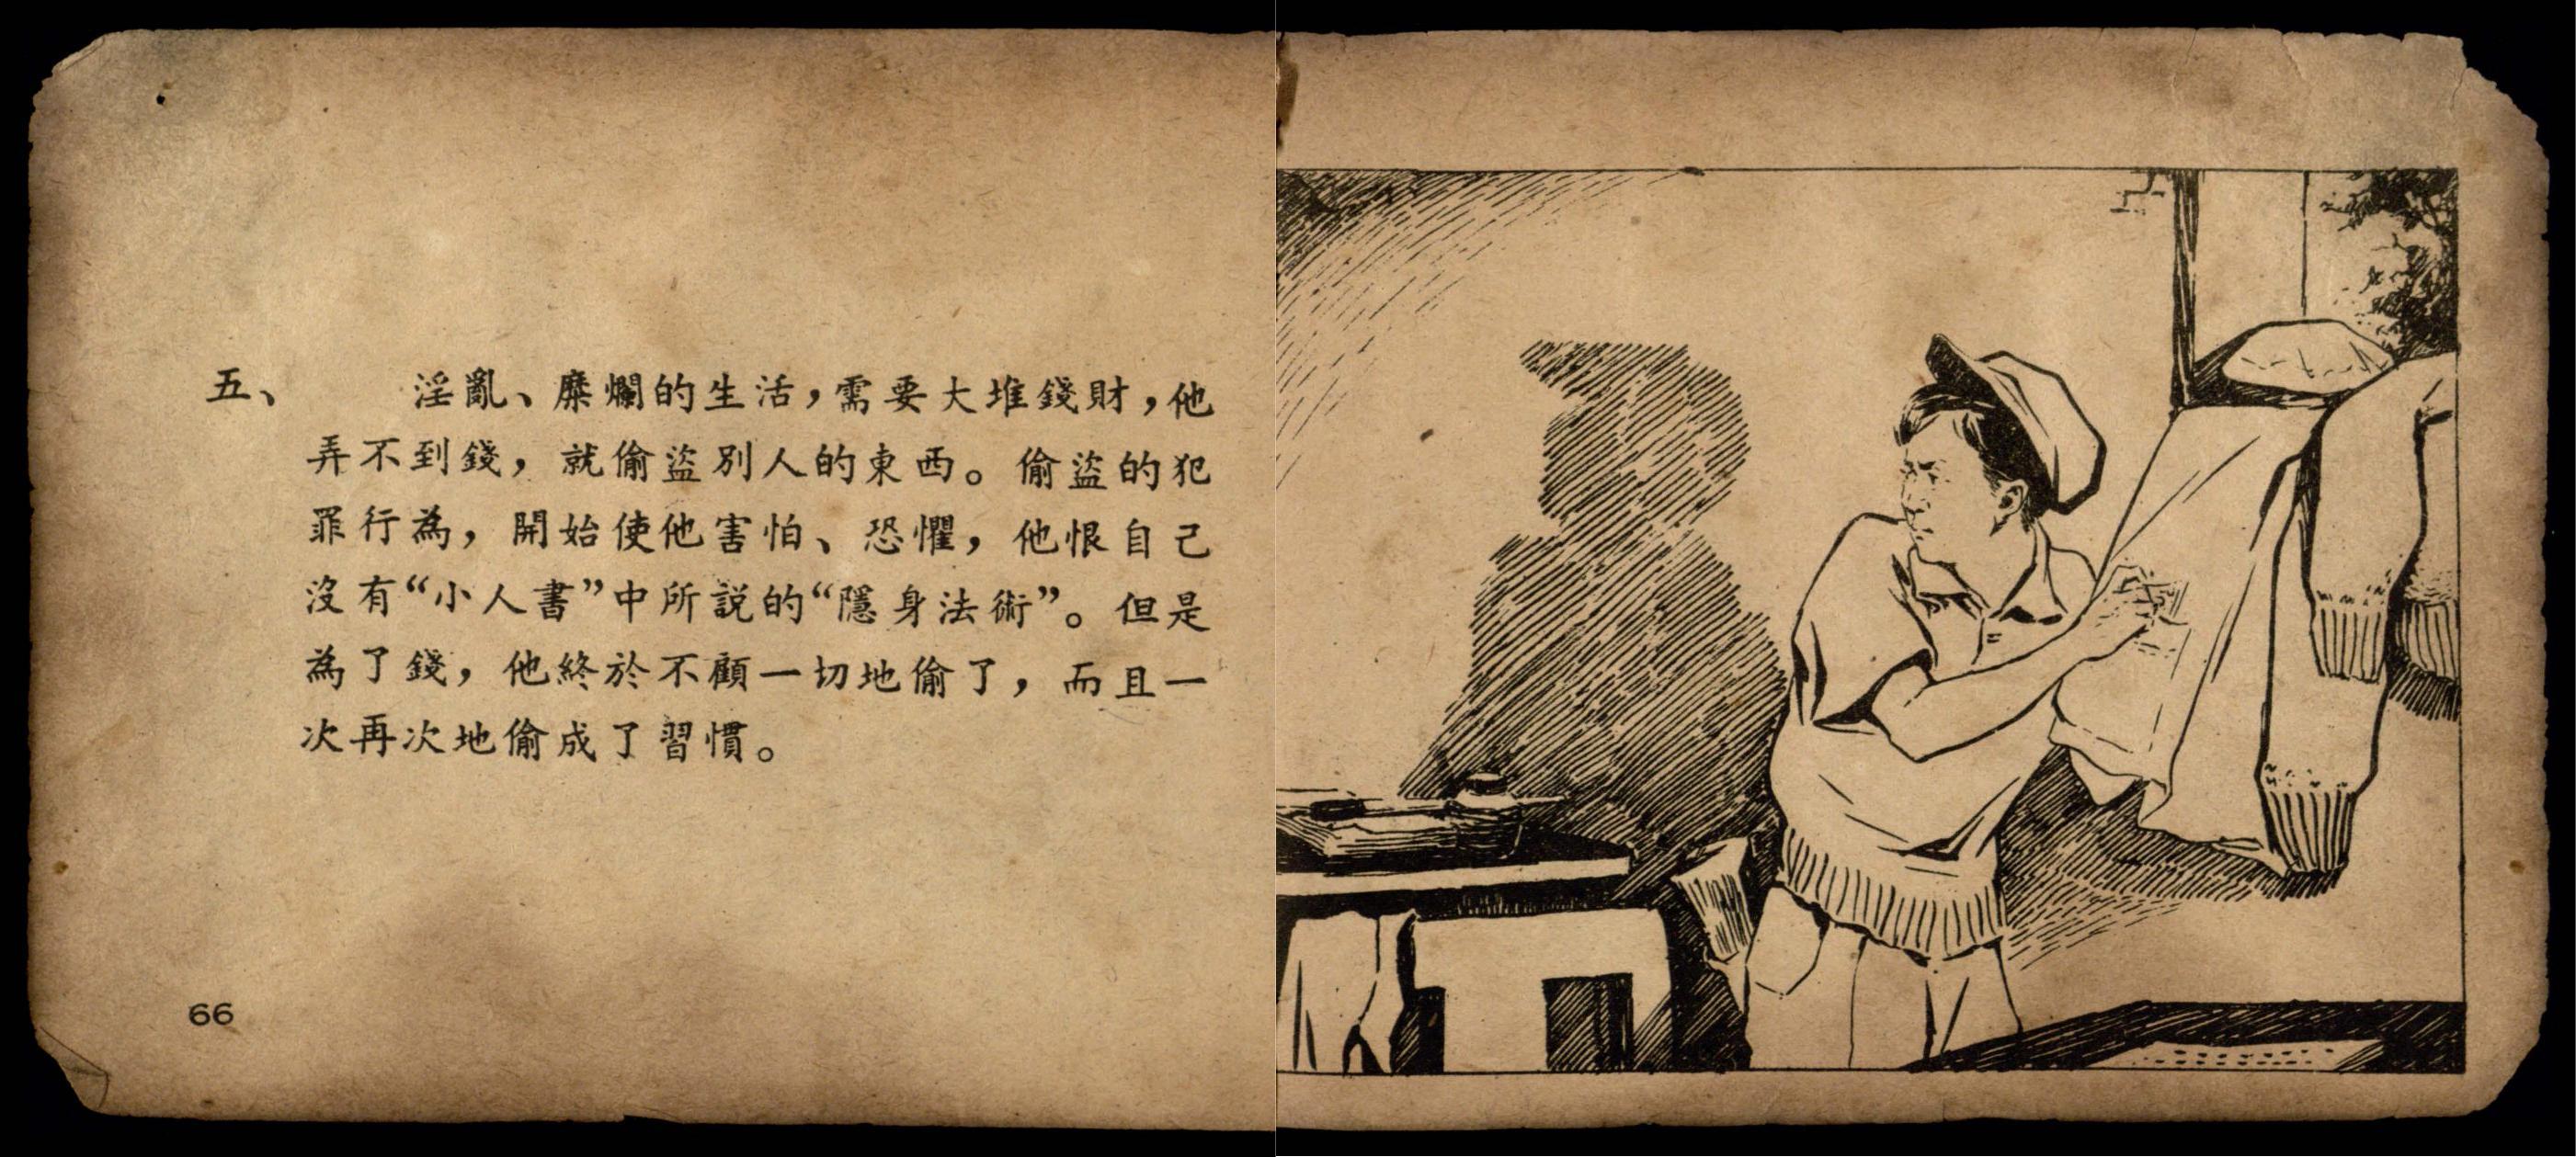 五、 淫亂、糜爛的生活，需要大堆錢財，他
弄不到錢，就偷盜別人的東西。偷盜的犯
罪行為，開始使他害怕、恐懼，他恨自己
沒有“小人書”中所説的“隱身法術”。但是
為了錢，他終於不顧一切地偷了，而且一
次再次地偷成了習慣。
66